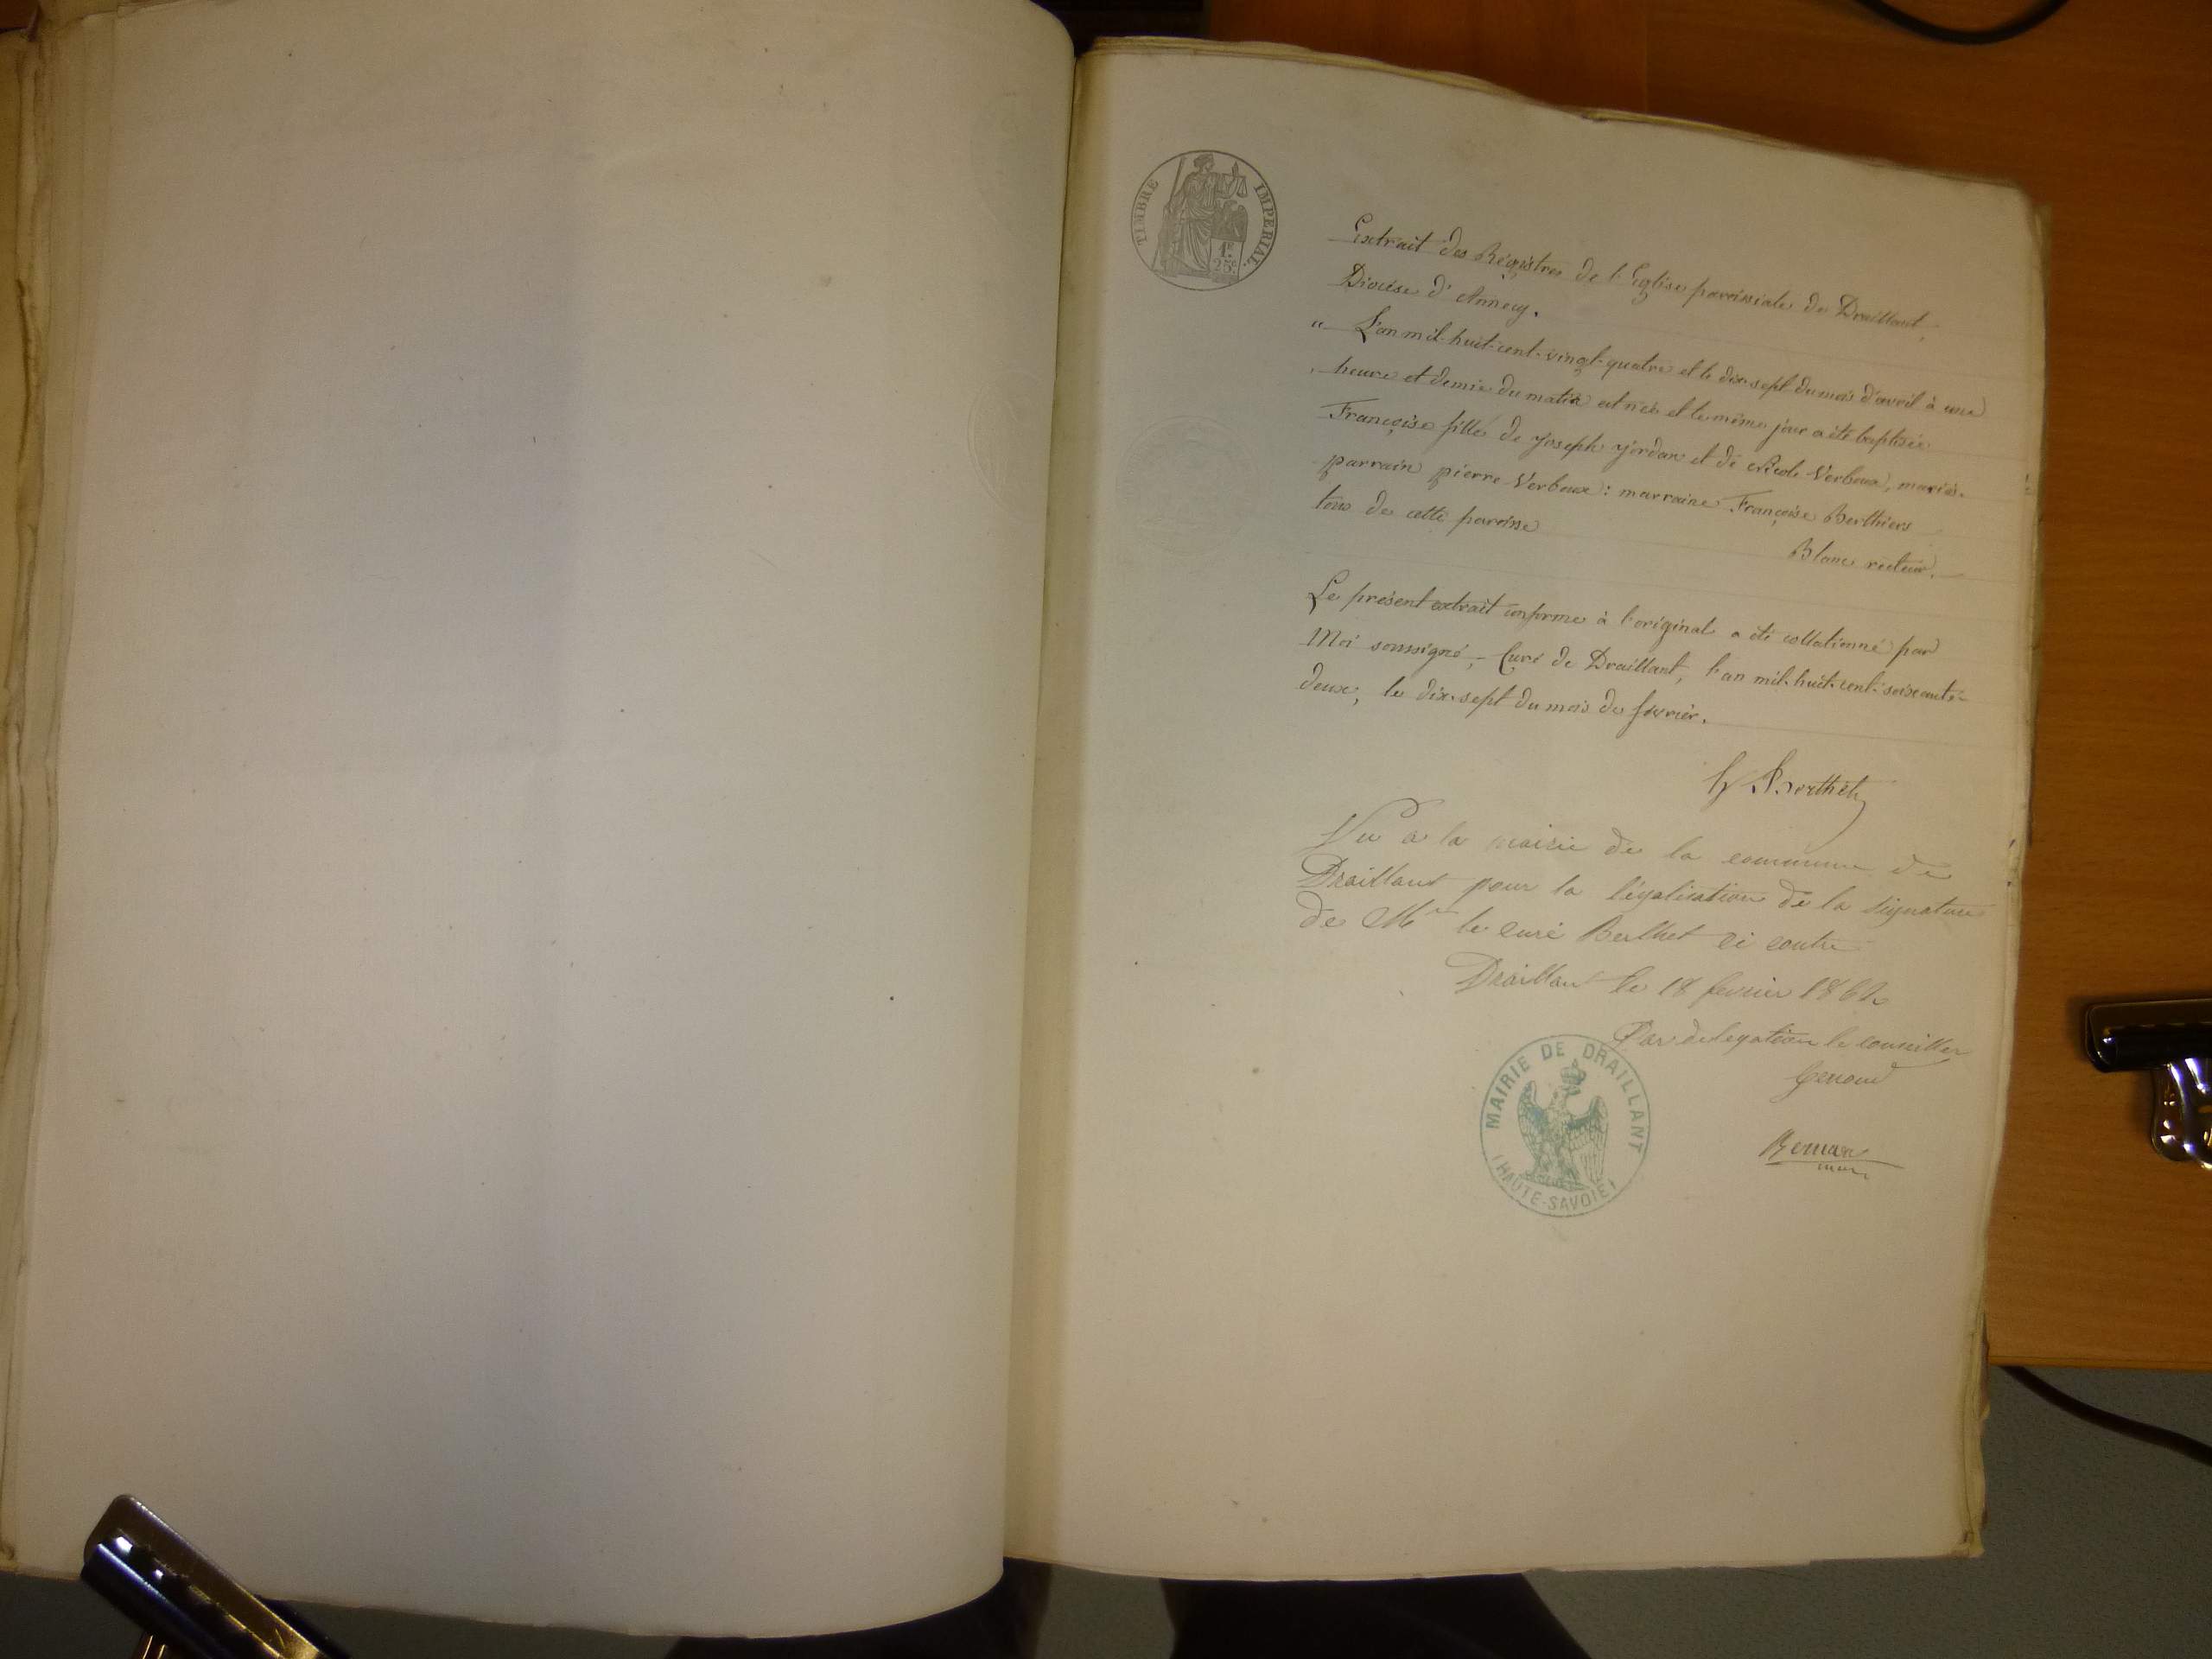 TIMBRE IMPERIAL.
1F.
25c.
Extrait des Régistres de l'Eglise paroissiale de Draillant,
Diocèse d'Annecy.
" L'an mil-huit-cent-vingt-quatre et le dix-sept du mois d'avril à une
heure et demie du matin est née et le même jour a été baptisée
Françoise fille de joseph jordan et de Nicole Verboux, mariés.
parrain pierre Verboux: marraine Françoise Berthiers
tous de cette paroisse
Blanc recteur.
Le présent extrait conforme à l'original a été collationné par
Moi soussigné, Curé de Draillant, l'an mil-huit-cent-soixante-
deux, le dix-sept du mois de février.
Berthet
Vu a la mairie de la commune de
Draillant pour la légalisation de la signature
de Mr le curé Berthet ci contre
Draillant le 18 fevrier 1862
Par delegation le conseiller
MAIRIE DE DRAILLANT
(HAUTE-SAVOIE)